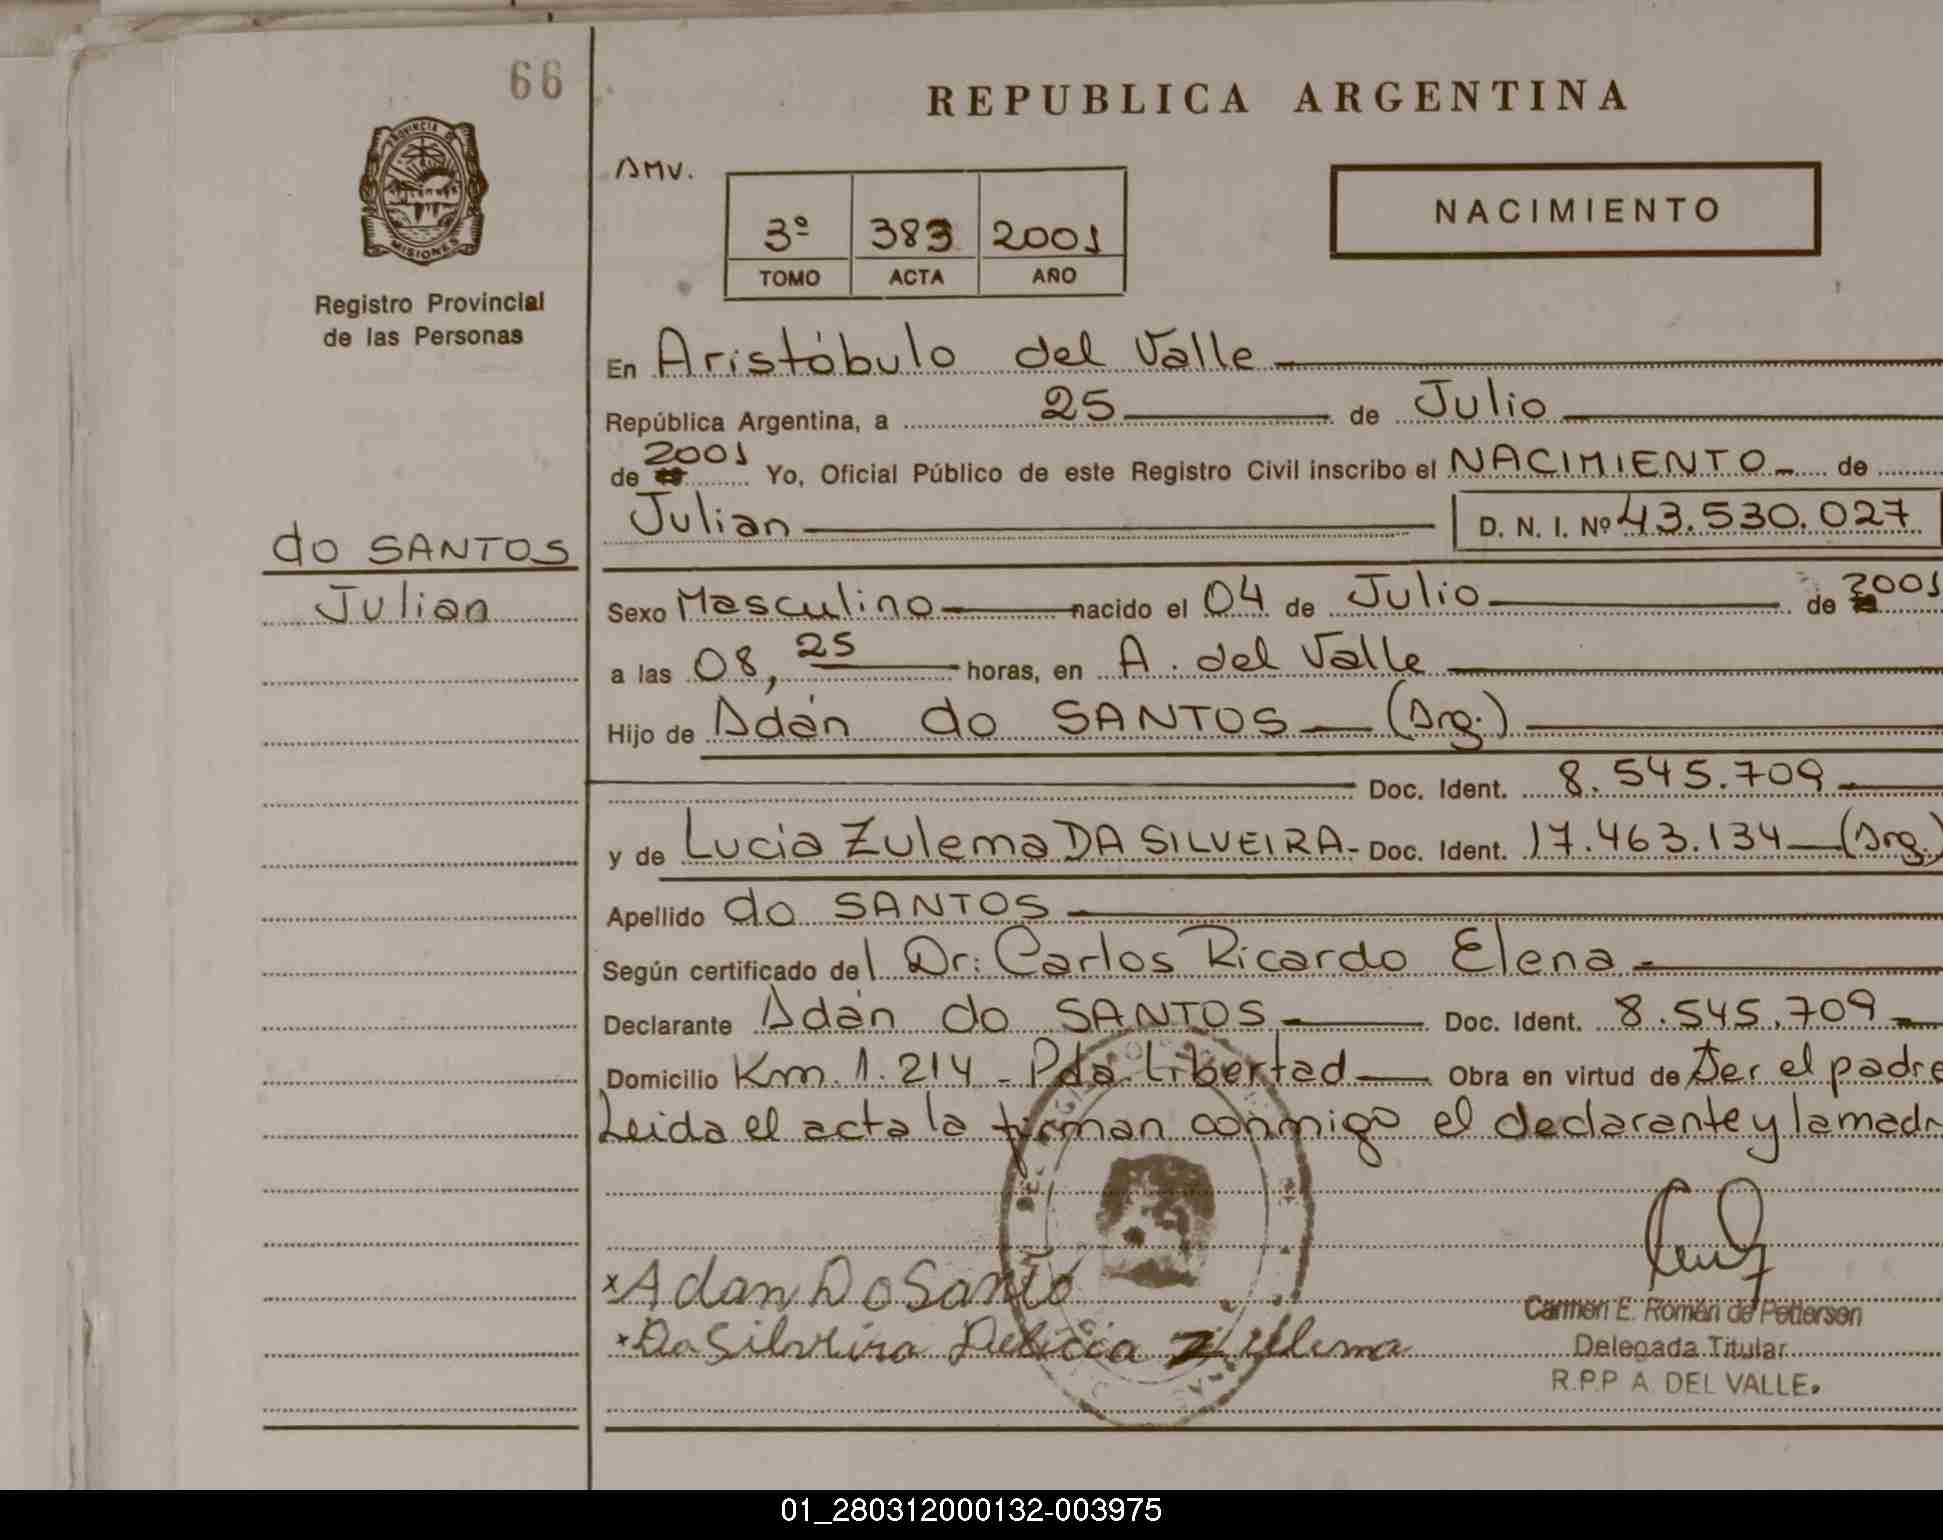 66
REPUBLICA ARGENTINA
PROVINCIA DE
MISIONES
Registro Provincial
de las Personas
AMV.
3º 383 2001
TOMO ACTA AÑO
NACIMIENTO
En Aristóbulo del Valle
República Argentina, a 25 de Julio
de 2001 Yo, Oficial Público de este Registro Civil inscribo el NACIMIENTO de
Julian D. N. I. Nº 43.530.027
do SANTOS
Julian
Sexo Masculino nacido el 04 de Julio de 2001
a las 08, 25 horas, en A. del Valle
Hijo de Adán do SANTOS (Arg.)
Doc. Ident. 8.545.709
y de Lucia Zulema DA SILVEIRA - Doc. Ident. 17.463.134 (Arg.)
Apellido do SANTOS
Según certificado del Dr: Carlos Ricardo Elena
Declarante Adán do SANTOS Doc. Ident. 8.545.709
Domicilio Km. 1.214 - Pda. Libertad Obra en virtud de Ser el padre
Leida el acta la firman conmigo el declarante y la madr
x Adan Do Santo
x Da Silveira Zulema
Carmen E. Román de Pettersen
Delegada Titular
R.P.P A. DEL VALLE.
01_280312000132-003975